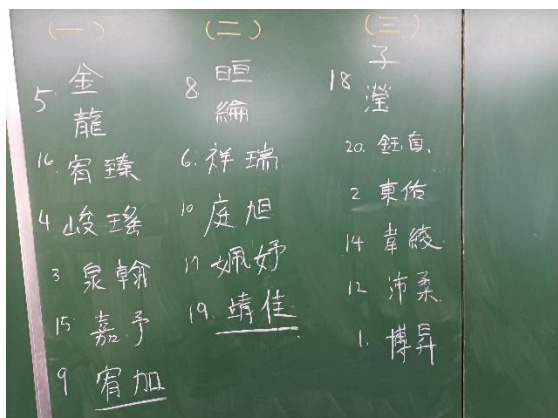 (一)
5. 金龍
16. 宥臻
4 峻瑤
3 泉翰
15. 嘉予
9 宥加
(二)
8. 晅綸
6. 祥瑞
10 庭旭
17 姵妤
19. 靖佳
(三)
18 子瀅
20. 鈺貞
2 東佑
14 韋綾
12 沛柔
1. 博昇